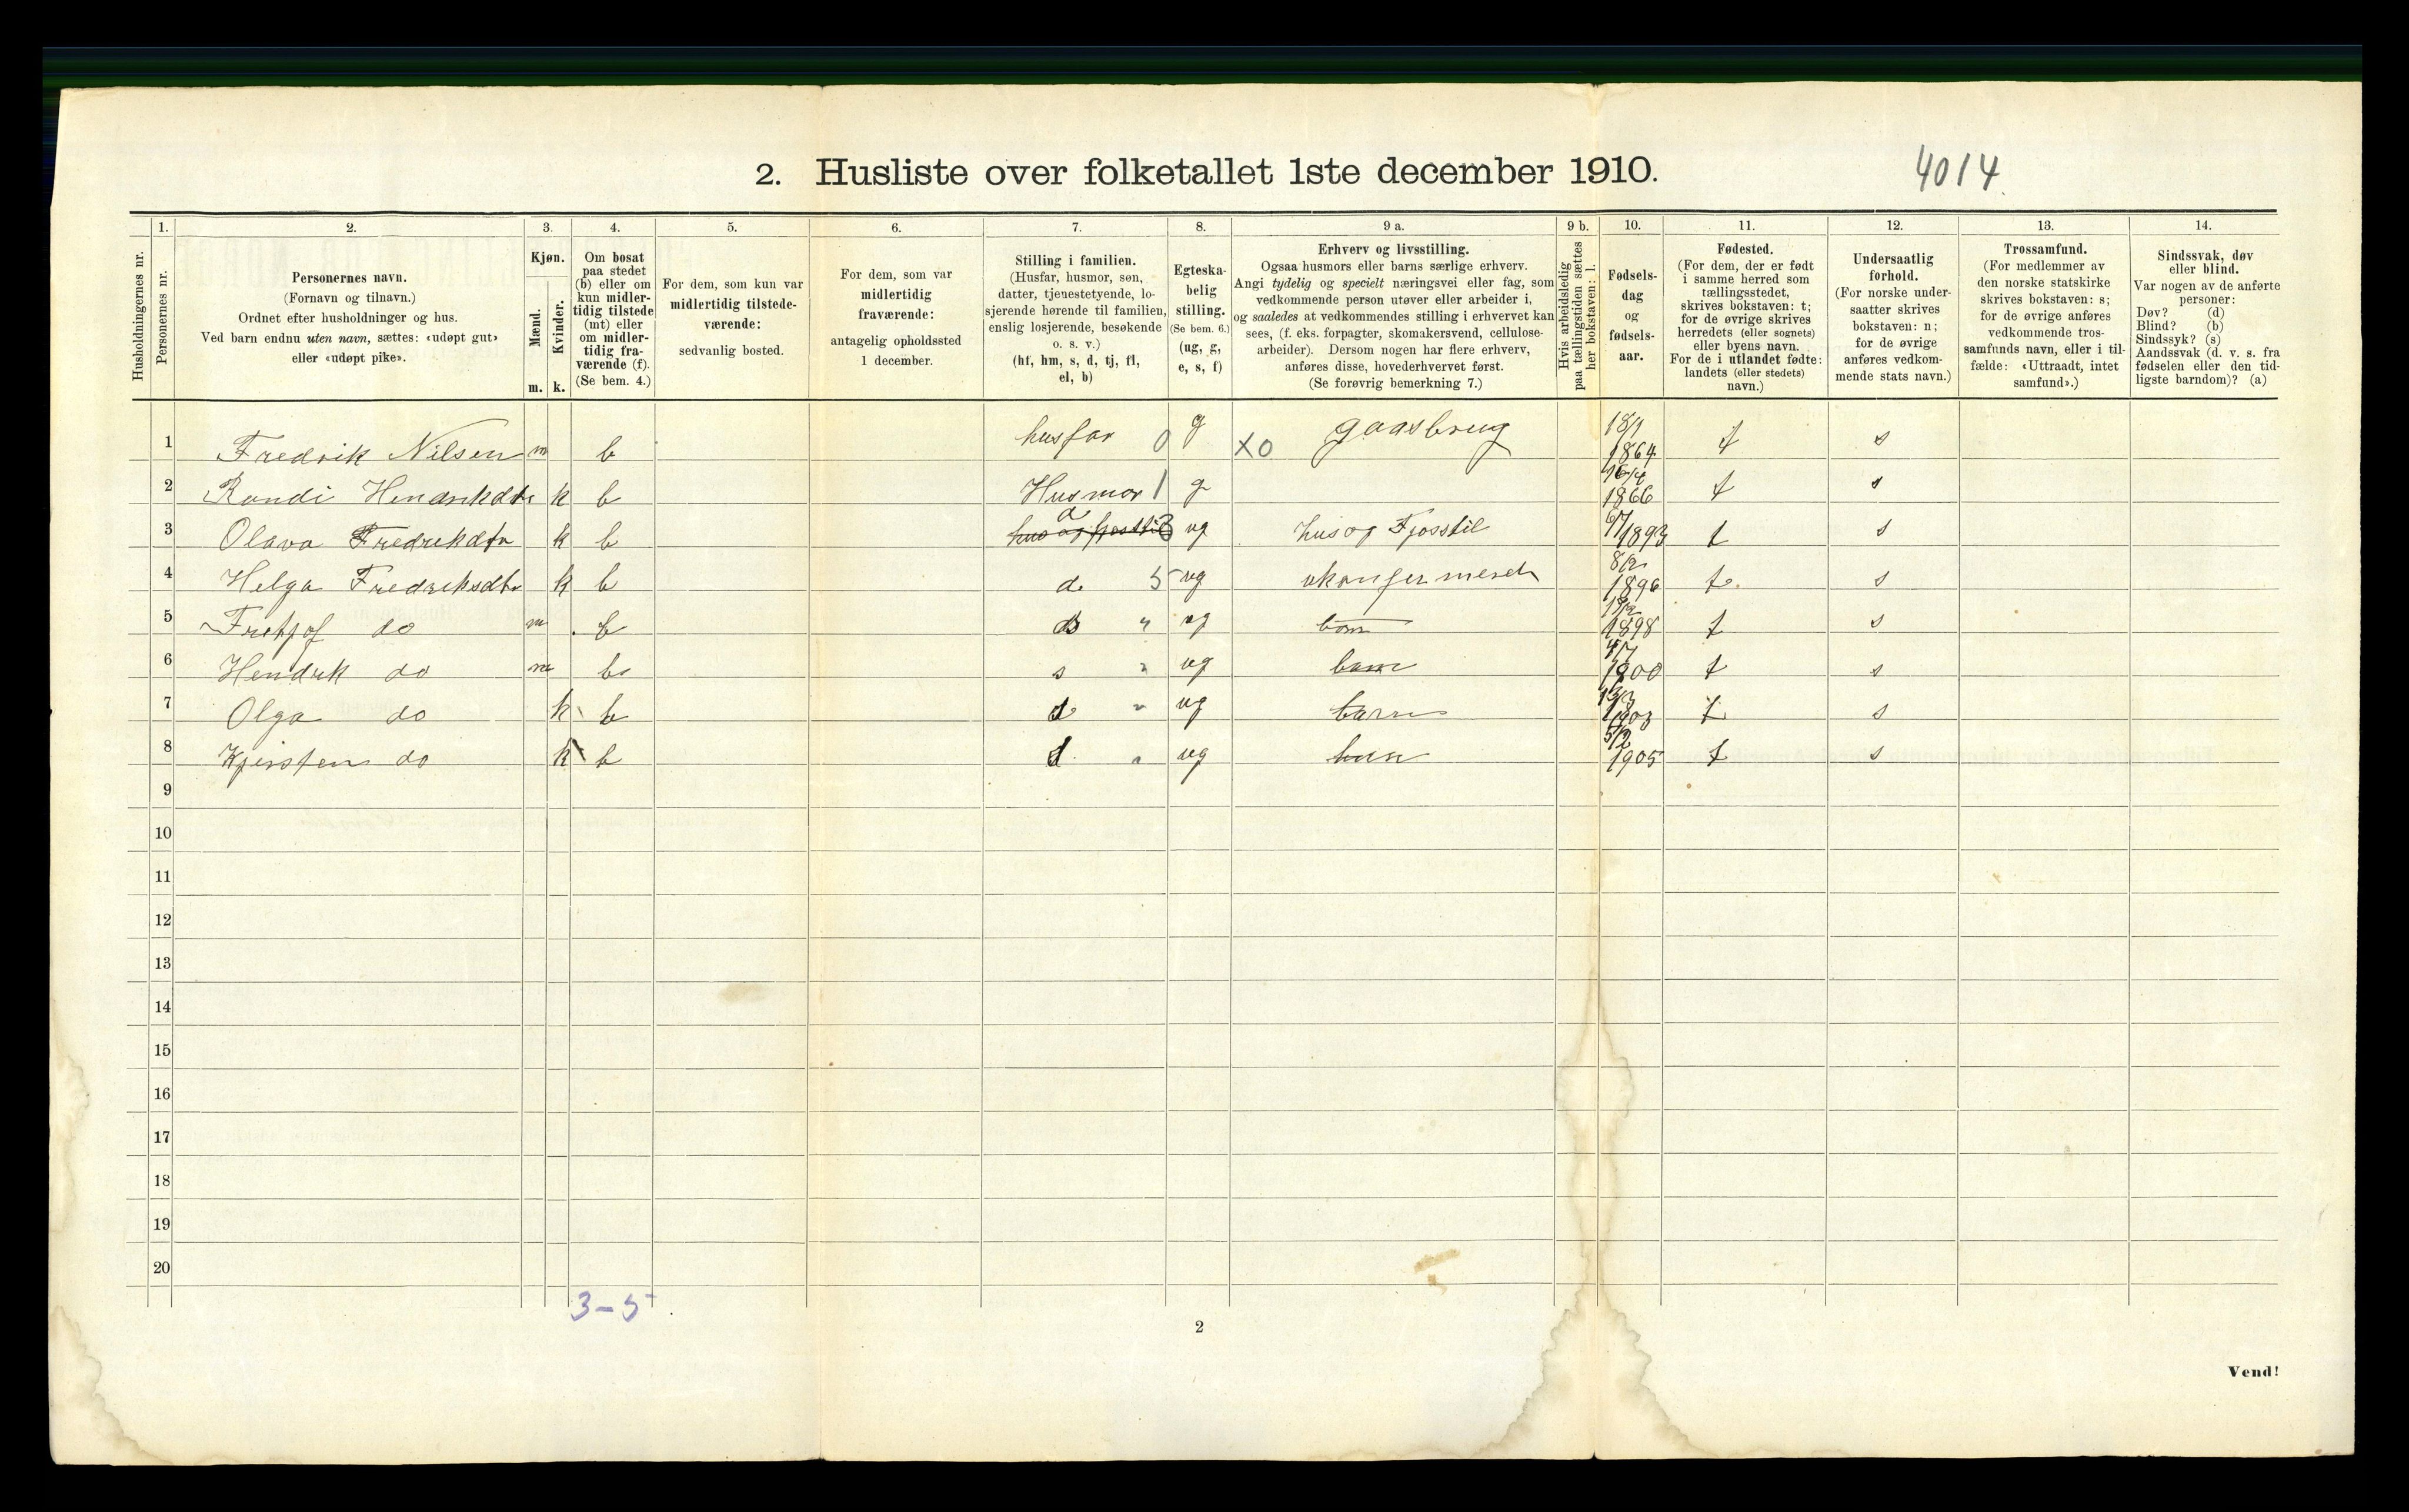 2. Husliste over folketallet 1ste december 1910.
4014
1. 2. 3. 4. 5. 6. 7. 8. 9 a. 9 b. 10. 11. 12. 13. 14.
Husholdningernes nr.
Personernes nr.
Personernes navn.
(Fornavn og tilnavn.)
Ordnet efter husholdninger og hus.
Ved barn endnu uten navn, sættes: «udøpt gut»
eller «udøpt pike».
Kjøn.
Mænd.
Kvinder.
m. k.
Om bosat
paa stedet
(b) eller om
kun midler-
tidig tilstede
(mt) eller
om midler-
tidig fra-
værende (f).
(Se bem. 4.)
For dem, som kun var
midlertidig tilstede-
værende:
sedvanlig bosted.
For dem, som var
midlertidig
fraværende:
antagelig opholdssted
1 december.
Stilling i familien.
(Husfar, husmor, søn,
datter, tjenestetyende, lo-
sjerende hørende til familien,
enslig losjerende, besøkende
o. s. v.)
(hf, hm, s, d, tj, fl,
el, b)
Egteska-
belig
stilling.
(Se bem. 6.)
(ug, g,
e, s, f)
Erhverv og livsstilling.
Ogsaa husmors eller barns særlige erhverv.
Angi tydelig og specielt næringsvei eller fag, som
vedkommende person utøver eller arbeider i,
og saaledes at vedkommendes stilling i erhvervet kan
sees, (f. eks. forpagter, skomakersvend, cellulose-
arbeider). Dersom nogen har flere erhverv,
anføres disse, hovederhvervet først.
(Se forøvrig bemerkning 7.)
Hvis arbeidsledig
paa tællingstiden sættes
her bokstaven: l.
Fødsels-
dag
og
fødsels-
aar.
Fødested.
(For dem, der er født
i samme herred som
tællingsstedet,
skrives bokstaven: t;
for de øvrige skrives
herredets (eller sognets)
eller byens navn.
For de i utlandet fødte:
landets (eller stedets)
navn.)
Undersaatlig
forhold.
(For norske under-
saatter skrives
bokstaven: n;
for de øvrige
anføres vedkom-
mende stats navn.)
Trossamfund.
(For medlemmer av
den norske statskirke
skrives bokstaven: s;
for de øvrige anføres
vedkommende tros-
samfunds navn, eller i til-
fælde: «Uttraadt, intet
samfund».)
Sindssvak, døv
eller blind.
Var nogen av de anførte
personer:
Døv? (d)
Blind? (b)
Sindssyk? (s)
Aandssvak (d. v. s. fra
fødselen eller den tid-
ligste barndom)? (a)
1 Fredrik Nilsen m b husfar 0 g X0 gaasbrug 18/1 1864 t s
2 Randi Hendrikdtr k b Husmor 1 g 16/4 1866 t s
3 Olava Fredrekdtr k b hus og fjosstil d 3 ug hus og Fjosstil 6/7 1893 t s
4 Helga Fredreksdtr k b d. 5 ug ukonfermerch 8/2 1896 t. s
5 Fretjof do m b s " ug barn 1898 t s
6 Hendrk do m b s " ug barn 4/7 1900 t s
7 Olga do k b d " ug barn 1903 t s
8 Kjersten do k b d " ug barn 5/2 1905 t s
9
10
11
12
13
14
15
16
17
18
19
20
3-5
2
Vend!